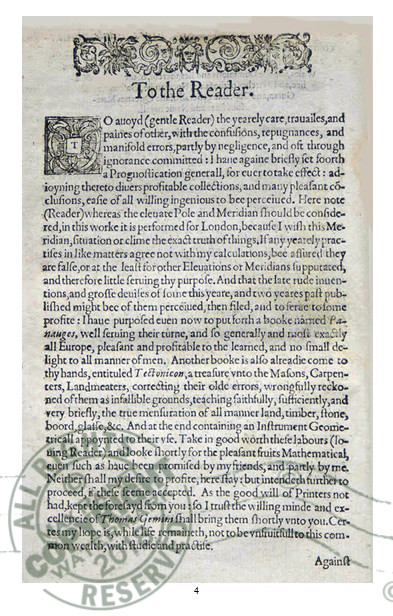 To the Reader.
TO auoyd (gentle Reader) the yearely care, trauailes, and
paines of other, with the confusions, repugnances, and
manifold errors, partly by negligence, and oft through
ignorance committed: I haue againe briefly set foorth
a Prognostication generall, for euer to take effect: ad-
ioyning thereto diuers profitable collections, and many pleasant cō-
clusions, easie of all willing ingenious to bee perceiued. Here note
(Reader) whereas the eleuate Pole and Meridian should be conside-
red, in this worke it is performed for London, because I wish this Me-
ridian, situation or clime the exact truth of things, If any yearely prac-
tises in like matters agree not with my calculations, bee assured they
are false, or at the least for other Eleuations or Meridians supputated,
and therefore little seruing thy purpose. And that the late rude inuen-
tions, and grosse deuises of some this yeare, and two yeares past pub-
lished might bee of them perceiued, then filed, and to serue to some
profite: I haue purposed euen now to put forth a booke named Pa-
nauges, well seruing their turne, and so generally and most exactly
all Europe, pleasant and profitable to the learned, and no small de-
light to all manner of men. Another booke is also alreadie come to
thy hands, entituled Tectonicon, a treasure vnto the Masons, Carpen-
ters, Landmeaters, correcting their olde errors, wrongfully recko-
ned of them as infallible grounds, teaching faithfully, sufficiently, and
very briefly, the true mensuration of all manner land, timber, stone,
boord, glasse, &c. And at the end containing an Instrument Geome-
tricall appoynted to their vse. Take in good worth these labours (lo-
uing Reader) and looke shortly for the pleasant fruits Mathematical,
euen such as haue been promised by my friends, and partly by me.
Neither shall my desire to profite, here stay: but intendeth further to
proceed, if these seeme accepted. As the good will of Printers not
had, kept the foresayd from you: so I trust the willing minde and ex-
cellencie of Thomas Gemini shall bring them shortly vnto you. Cer-
tes my hope is, while life remaineth, not to be vnfruitfull to this com-
mon wealth, with studie and practise.
Against
4
ALL
RESERVED